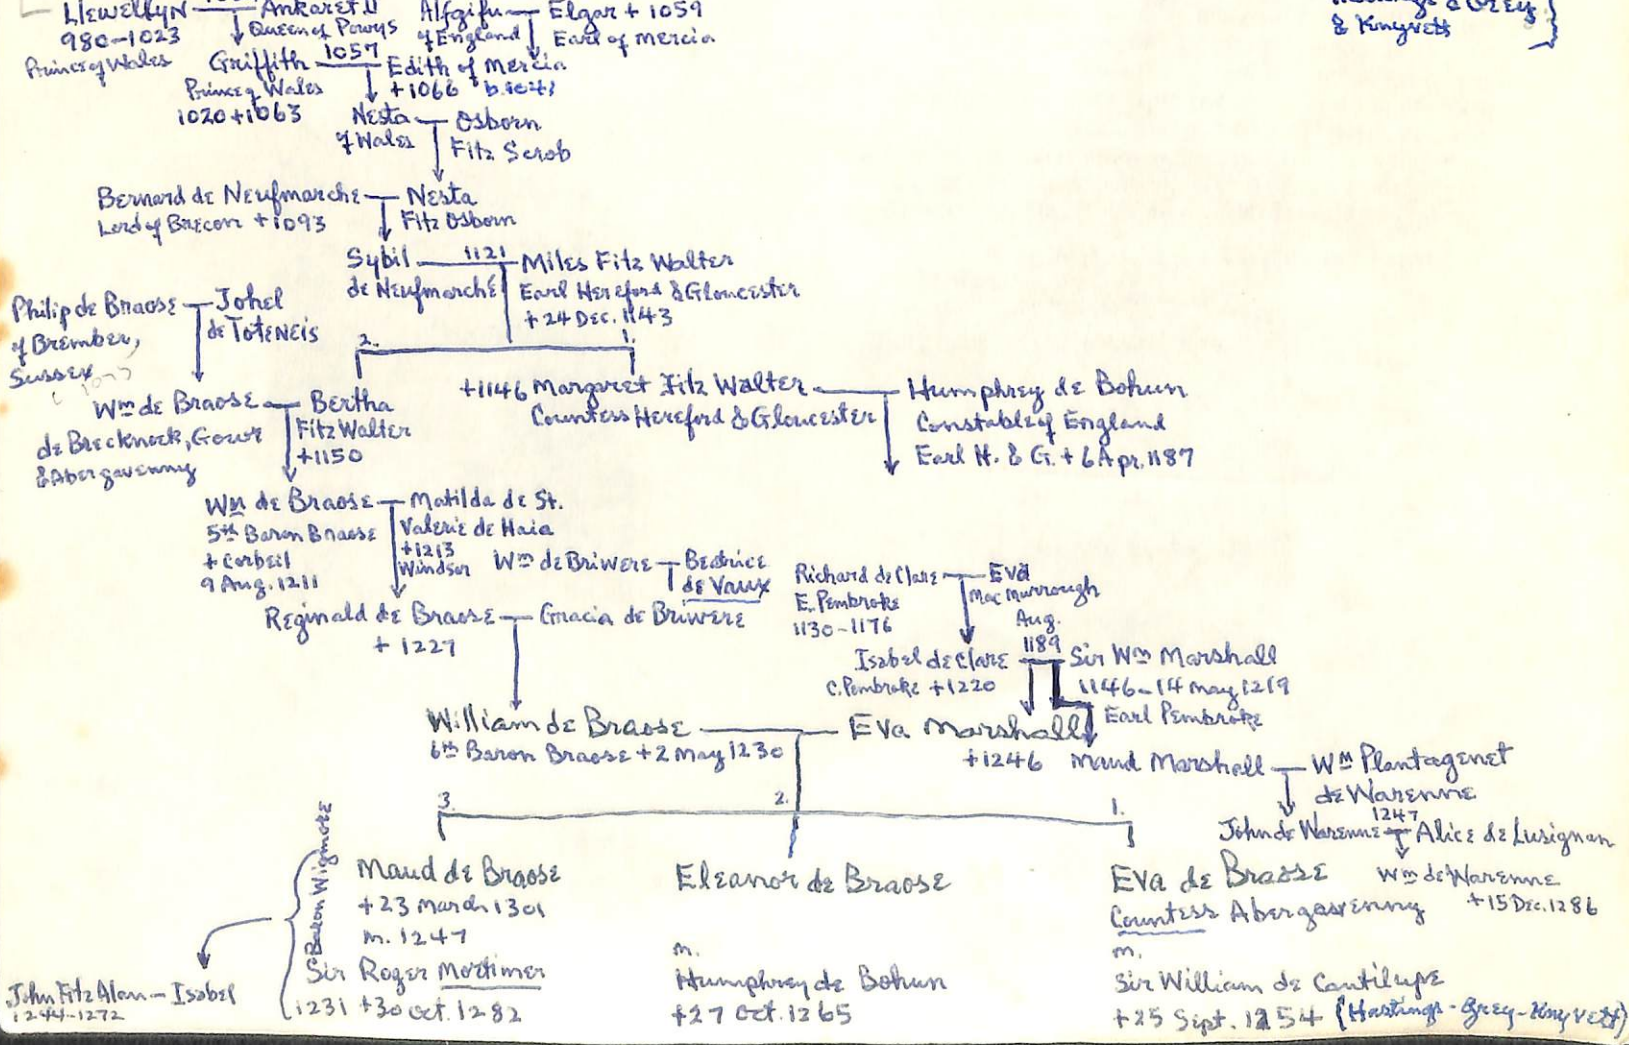 Llewellyn
980-1023
Prince of Wales
Ankaret II
Queen of Powys
Alfgifu
of England
Elgar + 1059
Earl of Mercia
& Knyvett
Griffith
Prince of Wales
1020 + 1063
1057
Edith of Mercia
+ 1066
Nesta
of Wales
Osborn
Fitz Scrob
Bernard de Neufmarche
Lord of Brecon + 1093
Nesta
Fitz Osborn
Sybil
de Neufmarché
1121
Miles Fitz Walter
Earl Hereford & Gloucester
+ 24 Dec. 1143
Philip de Braose
of Bramber,
Sussex
Johel
de Toteneis
2.
1.
Wm de Braose
de Brecknock, Gower
& Abergavenny
Bertha
Fitz Walter
+1150
+1146 Margaret Fitz Walter
Countess Hereford & Gloucester
Humphrey de Bohun
Constable of England
Earl H. & G. + 6 Apr. 1187
Wm de Braose
5th Baron Braose
+ Corbeil
9 Aug. 1211
Matilda de St.
Valerie de Haia
+1213
Windsor
Wm de Briwere
Beatrice
de Vaux
Richard de Clare
E. Pembroke
1130-1176
Eva
MacMurrough
Reginald de Braose
+ 1227
Gracia de Briwere
Isabel de Clare
C. Pembroke +1220
Aug.
1189
Sir Wm Marshall
1146-14 May 1219
Earl Pembroke
William de Braose
6th Baron Braose + 2 May 1230
Eva Marshall
+1246
Maud Marshall
Wm Plantagenet
de Warenne
John de Warenne
1247
Alice de Lusignan
Wm de Warenne
+15 Dec. 1286
3.
2.
1.
Baron Wigmore
Maud de Braose
+23 March 1301
m. 1247
Sir Roger Mortimer
1231 +30 Oct. 1282
Eleanor de Braose
m.
Humphrey de Bohun
+27 Oct. 1265
Eva de Braose
Countess Abergavenny
m.
Sir William de Cantilupe
+25 Sept. 1254 (Hastings-Grey-Knyvett)
John Fitz Alan - Isabel
1244-1272